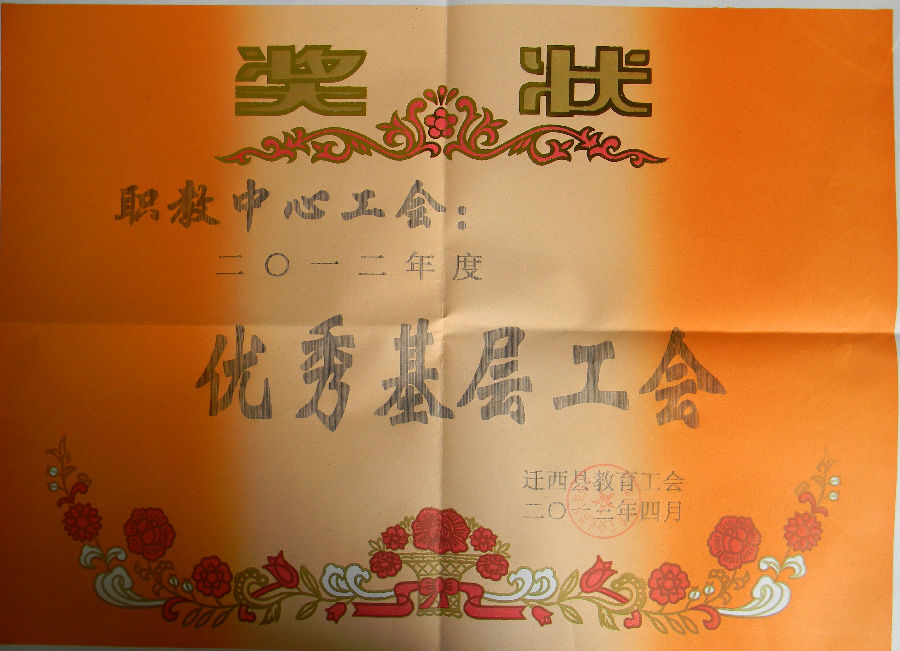 奖状
职教中心工会：
二〇一二年度
优秀基层工会
迁西县教育工会
二〇一三年四月